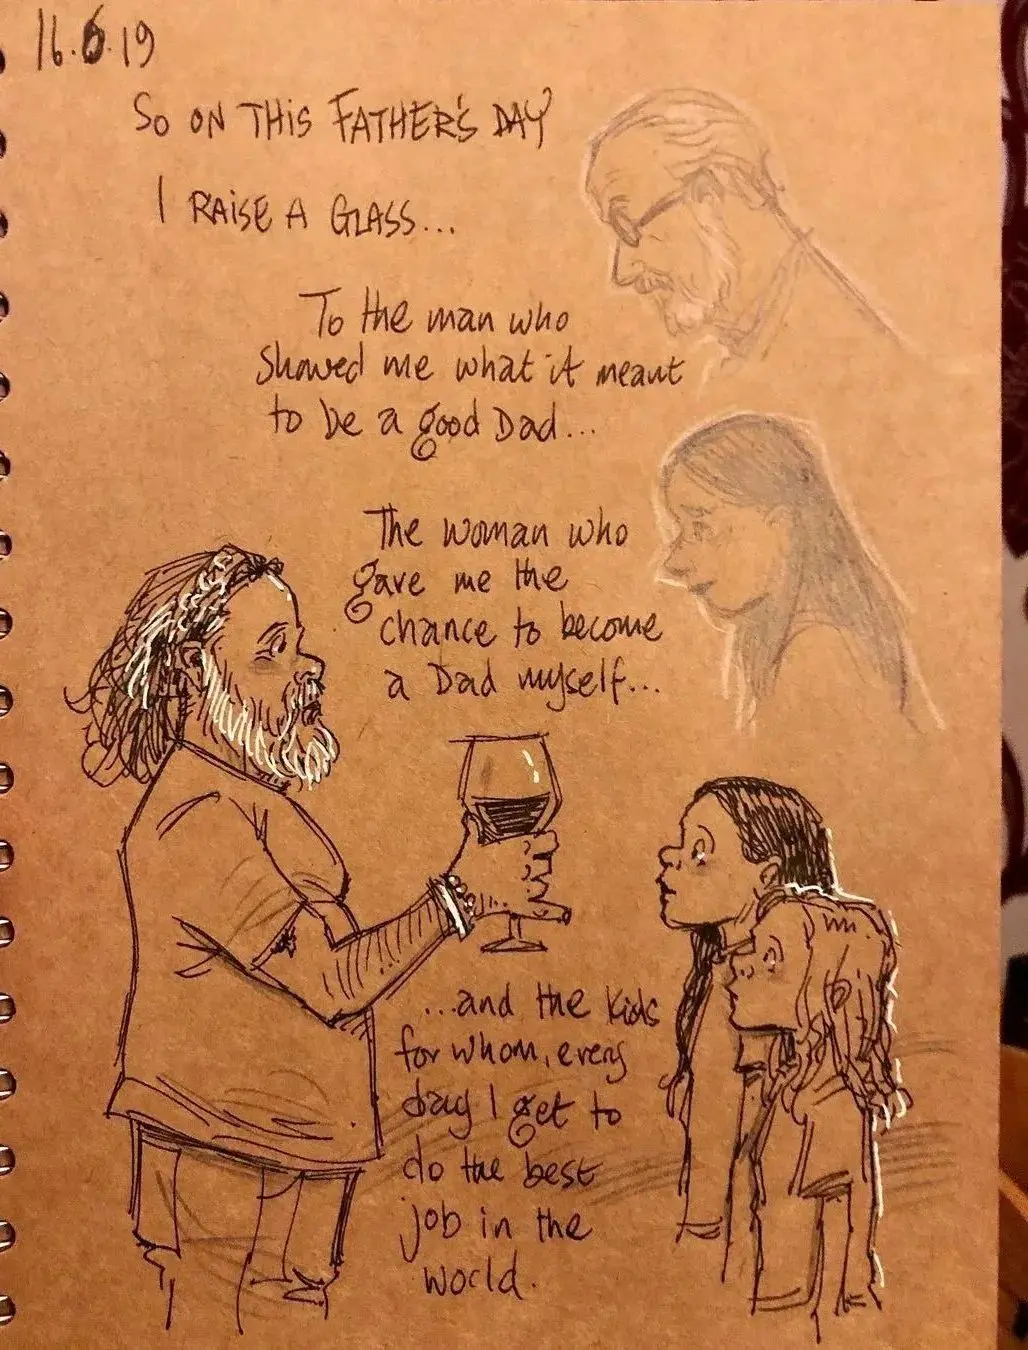 16.6.19
So ON THiS FATHER'S DAY
I RAiSE A GLASS...
To the man who
showed me what it meant
to be a good Dad...
The woman who
gave me the
chance to become
a Dad myself...
...and the kids
for whom, every
day I get to
do the best
job in the
world.